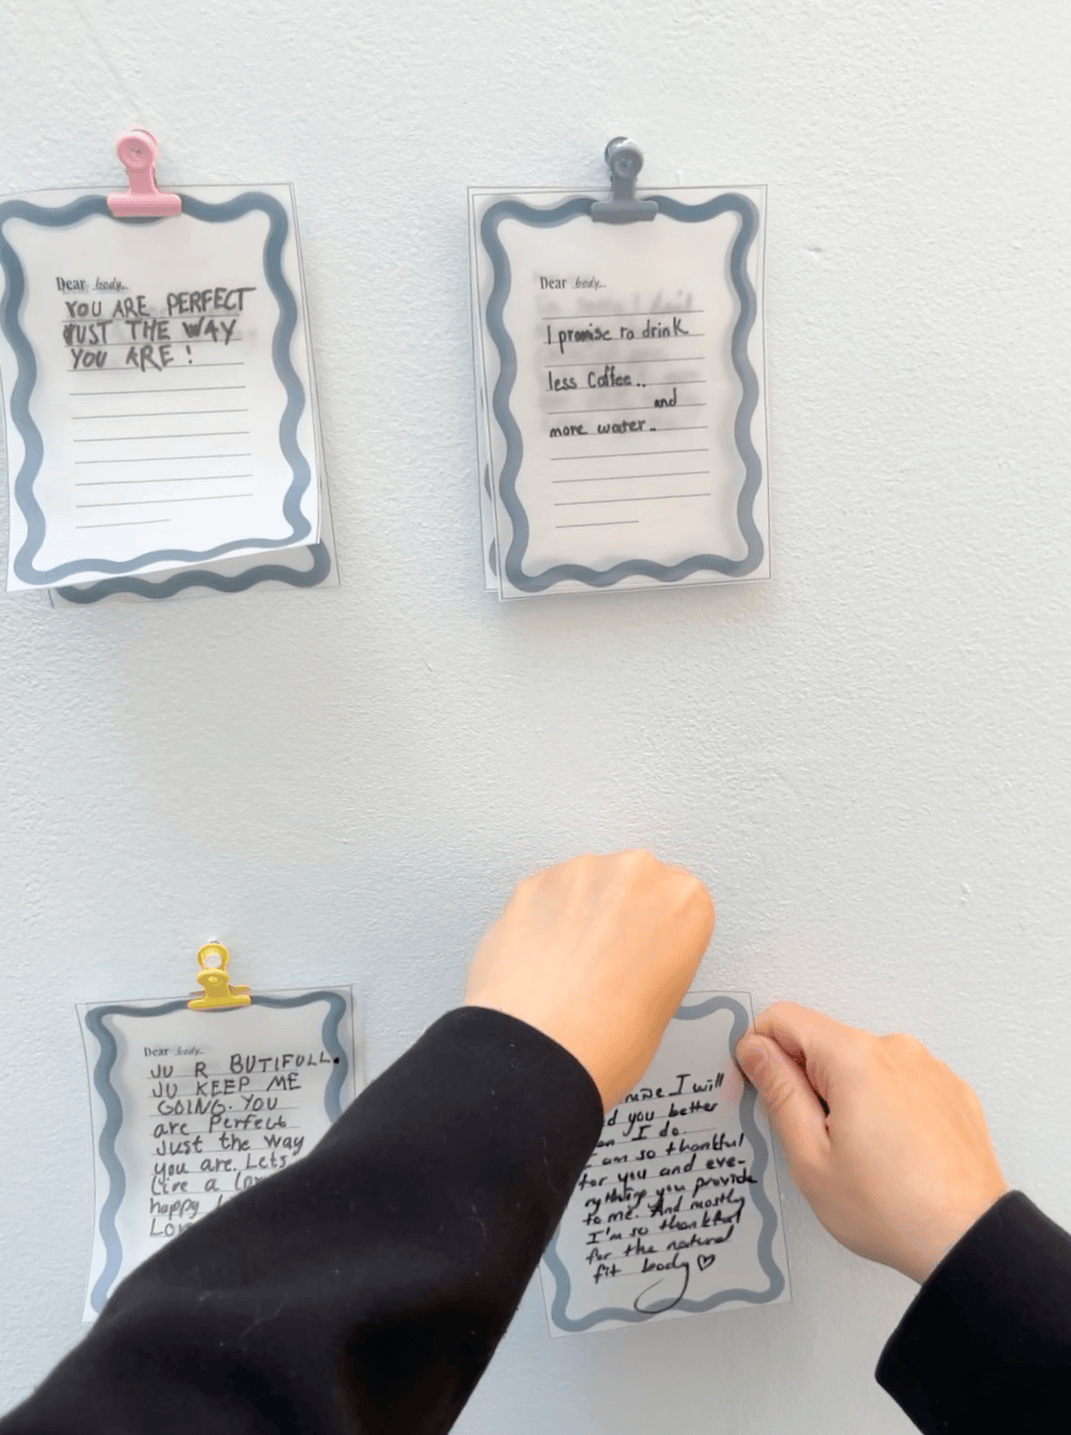 Dear body
YOU ARE PERFECT
JUST THE WAY
YOU ARE !
Dear body
I promise to drink
less Coffee..
and
more water..
Dear body
JU R BUTIFULL.
JU KEEP ME
GOING. YOU
are Perfect
Just the way
you are. Lets
Live a
happy
I will
you better
I do.
am so thankful
for you and eve-
rything you provide
to me. And mostly
I'm so thankful
for the natural
fit body